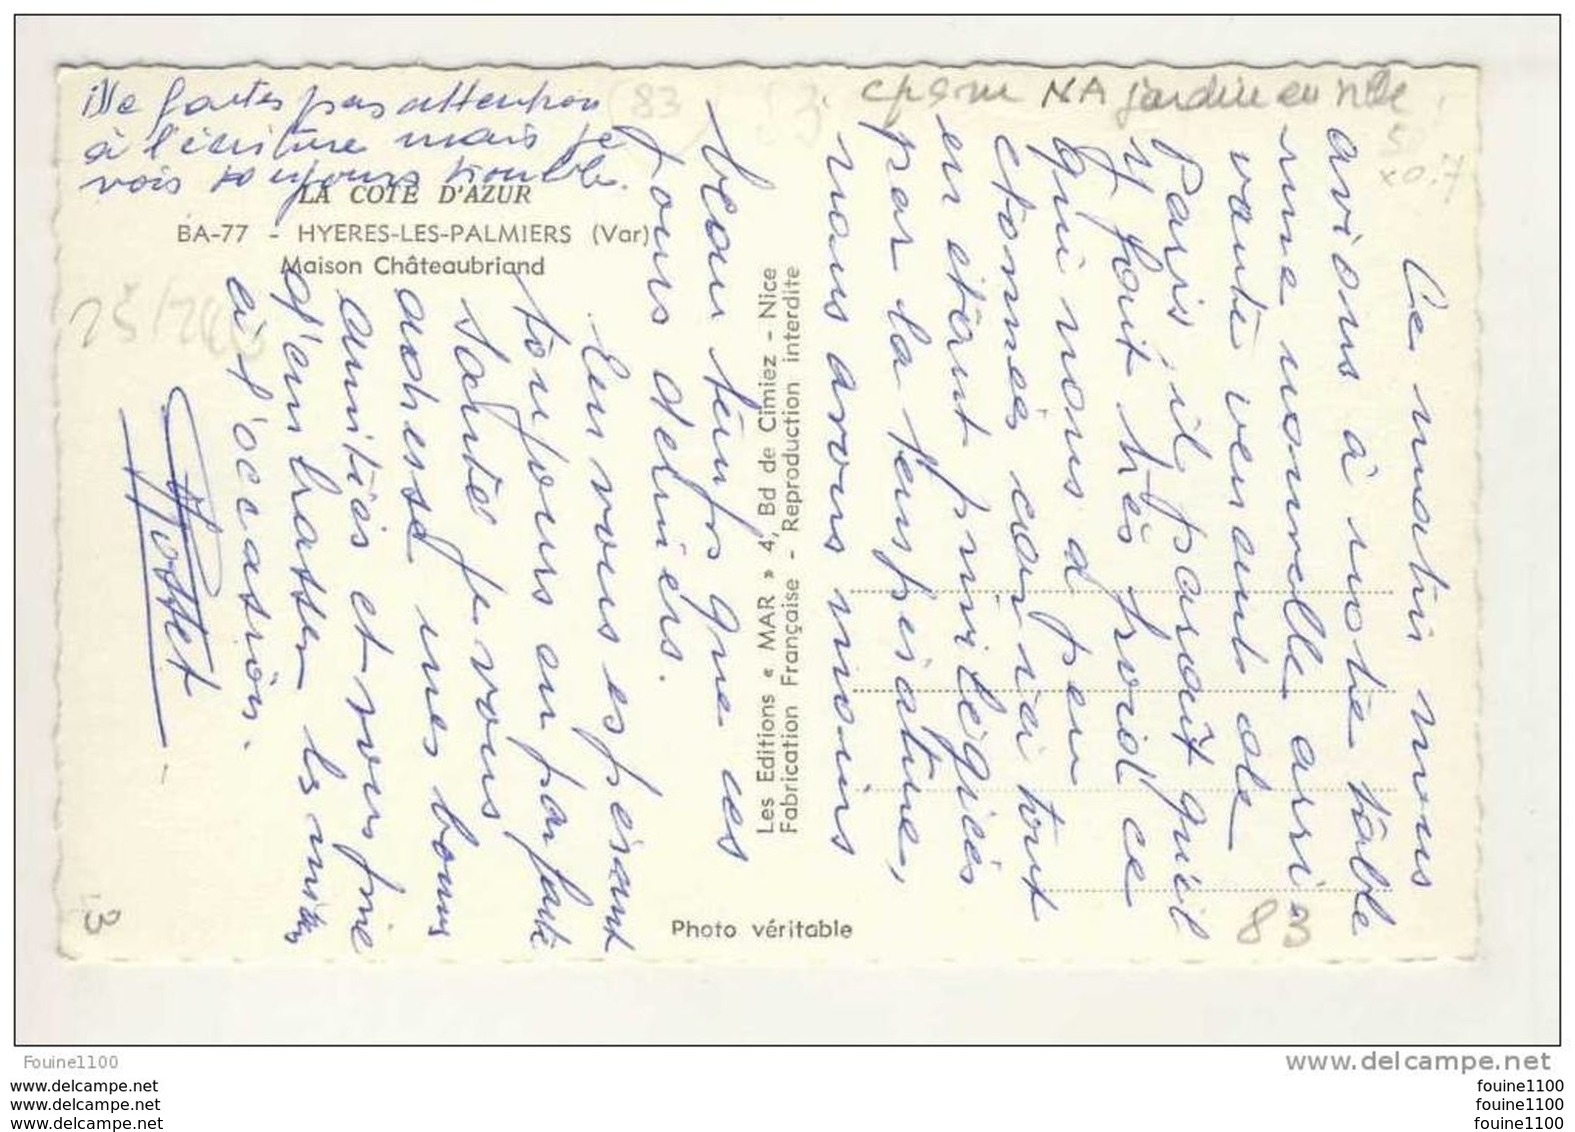 Ce matin nous
avions à notre table
une nouvelle arri-
vante venant de
Paris, il parait qu'il
y fait très froid ce
qui nous a un peu
étonnés car ici tout
en étant privilégiés
par la température,
nous avons moins
beau temps que ces
jours derniers.
En vous espérant
toujours en parfaite
santé je vous
adresse mes bonnes
amitiés et vous prie
d'embrasser les
à l'occasion.
Ne faites pas attention
à l'écriture mais je
vois toujours trouble.
LA COTE D'AZUR
BA-77 - HYERES-LES-PALMIERS (Var)
Maison Châteaubriand
Les Editions « MAR » 4, Bd de Cimiez - Nice
Fabrication Française - Reproduction interdite
Photo véritable
cpsm NA jardin en ville
83
x0.7
(83)
83
3
Fouine1100
www.delcampe.net
www.delcampe.net
www.delcampe.net
www.delcampe.net
fouine1100
fouine1100
fouine1100